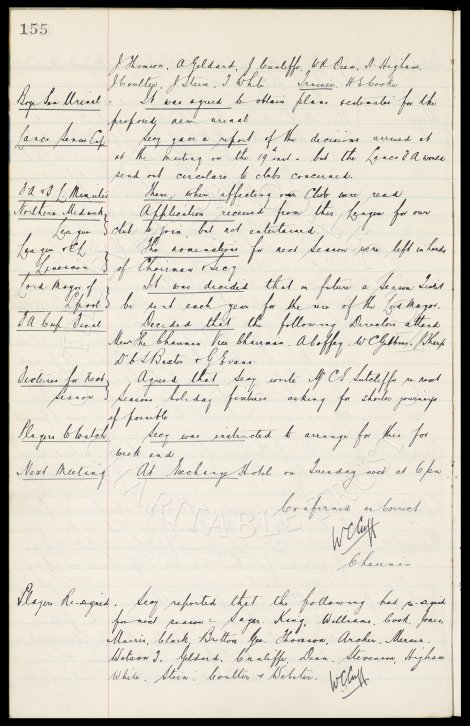 155
J Thomson, A Geldard, J Cunliffe, W R Dean, N Higham,
J Coulter, J Stein, T White Trainer H E Cooke
Boys Sec Urinal . It was agreed to obtain plans & estimates for the
proposed new urinal
Lancs Senior Cup Secy gave a report of the decisions arrived at
at the meeting on the 19th inst. but the Lancs F A would
send out circulars to clubs concerned.
F A & F L Minutes These, when affecting our Club were read
Northern Midweek League Application received from this League for our
club to join, but not entertained.
League & C L Linesmen The nominations for next season were left in hands
of Chairman & Secy
Lord Mayor of L'pool It was decided that in future a Season Ticket
be sent each year for the use of the Lord Mayor.
F A Cup Final Decided that the following Directors attend
Messrs The Chairman Vice Chairman, A Coffey, W C Gibbins, J Sharp
Dr C S Baxter & G Evans
Fixtures for Next season Agreed that Secy write Mr C E Sutcliffe re next
season holiday fixtures asking for shorter journeys
if possible
Players to Watch Secy was instructed to arrange for this for
week end
Next Meeting At Exchange Hotel on Tuesday next at 6 pm
CHARITABLE TRUST
Confirmed as Correct
W C Cuff
Chairman
Players Re-signed. Secy reported that the following had re-signed
for next season :- Sagar, King, Williams, Cook, Jones,
Morris, Clark, Britton Geo. Thomson, Archer, Mercer,
Watson T. Geldard, Cunliffe, Dean, Stevenson, Higham
White, Stein, Coulter & Webster.
W C Cuff